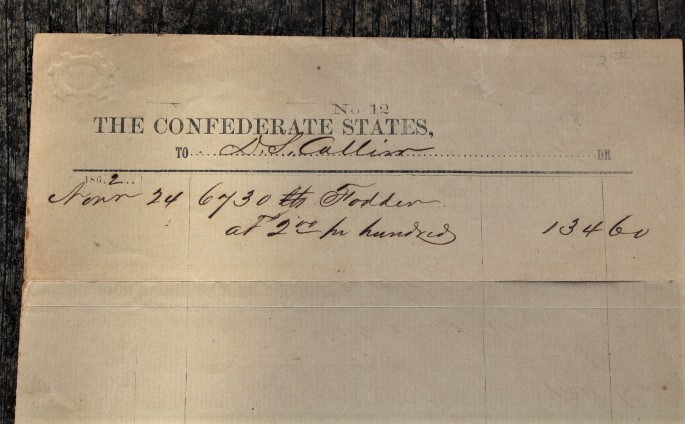 No 12
THE CONFEDERATE STATES,
TO D. S. Collins DR
1862
Novr 24 6730 lb Fodder
at 2 00 pr hundred 134 60